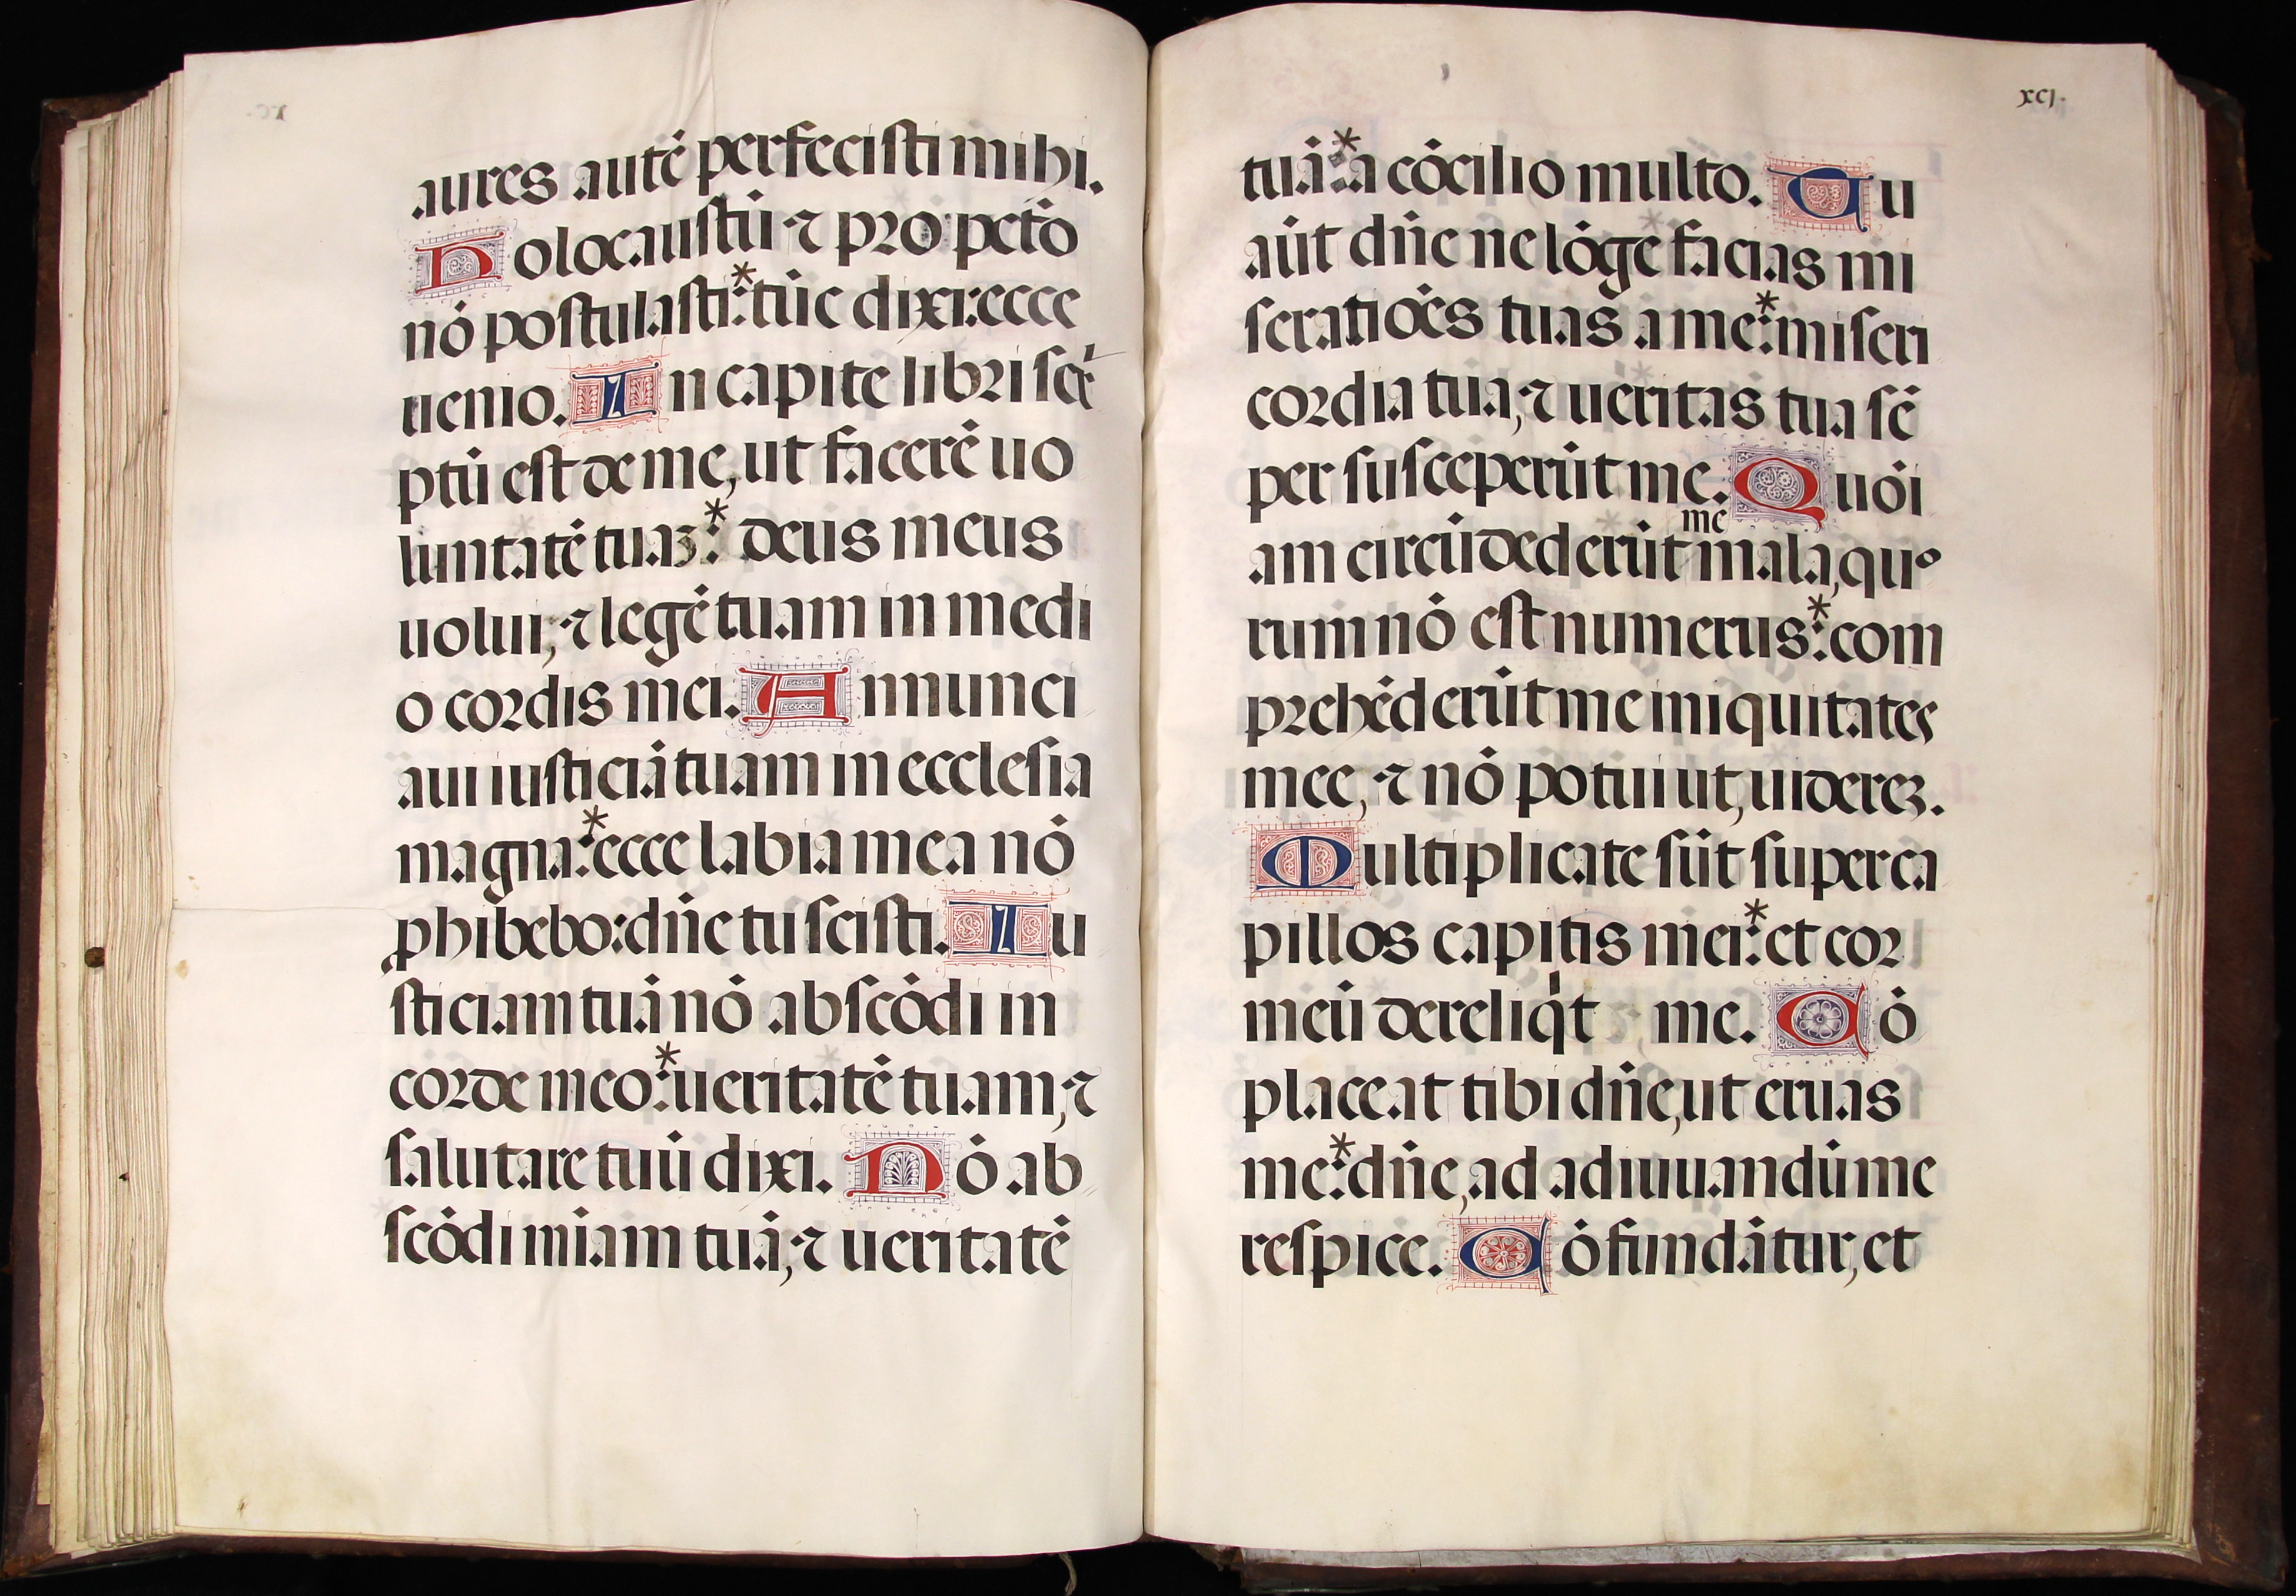 aures autē perfecisti mihi.
Holocaustū ⁊ pro pctō
nō postulasti:* tūc dixi: ecce
uenio. In capite libri scr̄
ptū est de me, ut facerē uo
luntatē tuaȝ:* deus meus
uolui, ⁊ legē tuam in medi
o cordis mei. Annunci
aui iusticiā tuam in ecclesia
magna:* ecce labia mea nō
ꝓhibebo: dñe tu scisti. Iu
sticiam tuā nō abscōdi in
corde meo:* ueritatē tuam, ⁊
salutare tuū dixi. Nō ab
scōdi miām tuā, ⁊ ueritatē
xcj.
tuā:* a cōcilio multo. Tu
aūt dñe ne lōge facias mi
seratiōēs tuas a me:* miseri
cordia tua, ⁊ ueritas tua sē
per susceperūt me. Quōi
me
am circūdederūt mala, quo
rum nō est numerus:* com
prehēderūt me iniquitates
mee, ⁊ nō potui ut, uidereȝ.
Multiplicate sūt super ca
pillos capitis mei:* et cor
meū dereliq̇t me. Cō
placeat tibi dñe, ut eruas
me:* dñe, ad adiuuandū me
respice. Cōfundātur, et